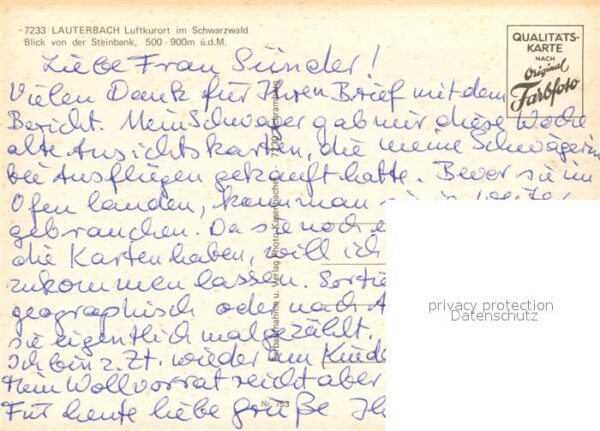 7233 LAUTERBACH Luftkurort im Schwarzwald
Blick von der Steinbank, 500-900m ü.d.M.
QUALITÄTS-
KARTE
NACH
Original
Farbfoto
Liebe Frau Sünder!
Vielen Dank für Ihren Brief mit dem
Bericht. Mein Schwager gab mir diese Woche
alte Ansichtskarten, die meine Schwägerin
bei Ausflügen gekauft hatte. Bevor sie im
Ofen landen, kann man
gebrauchen. Da sie noch
die Karten haben, will ich
zukommen lassen.
geographisch oder nach
sie eigentlich mal gezählt.
Ich bin z.Zt. wieder am
Mein Wollvorrat reicht aber
Für heute liebe Grüße
Farbaufnahme u. Verlag Photo
Nr. 763
privacy protection
Datenschutz